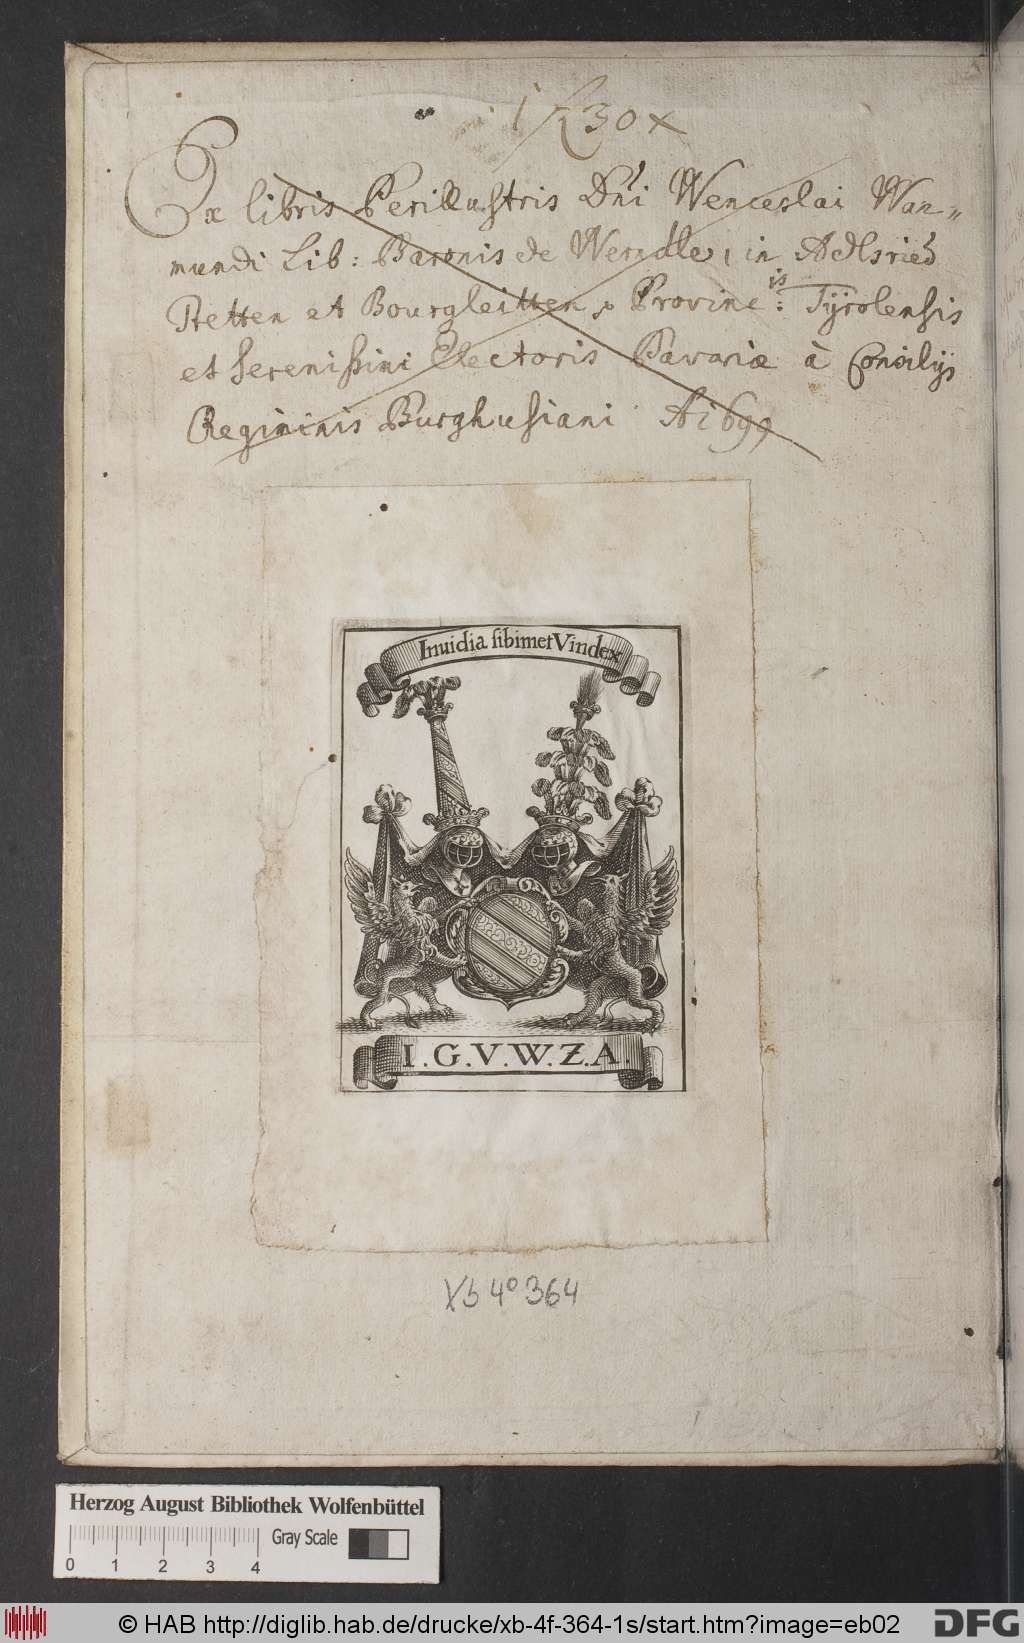 1730 x
Ex libris Perillustris Dni Wenceslai Wan=
mundi Lib: Baronis de Werndle, in Adlsried
Stetten et Bourgleitten, Provinc:is Tyrolensis
et Serenissimi Electoris Bavariæ à Consilijs
Regiminis Burghusiani Ai 699
Inuidia sibimet Vindex
I.G.V.W.Z.A.
Xb 4° 364
Herzog August Bibliothek Wolfenbüttel
Gray Scale
0 1 2 3 4
© HAB http://diglib.hab.de/drucke/xb-4f-364-1s/start.htm?image=eb02
DFG